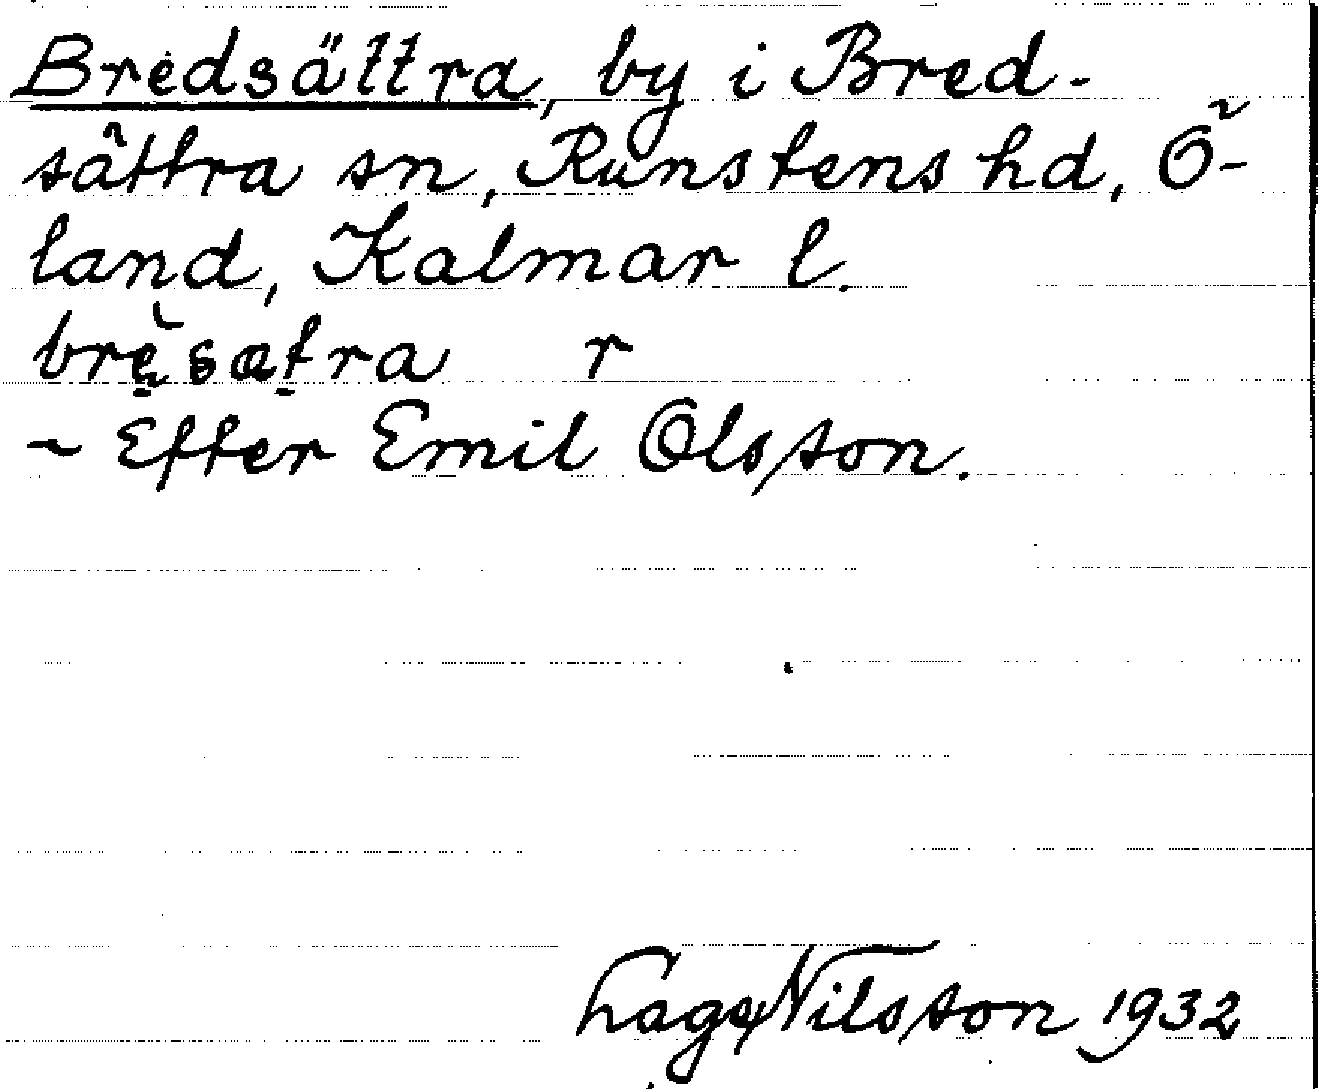 Bredsättra, by i Bred-
sättra sn, Runstens hd, Ö-
land, Kalmar l.
bresætra r
~ Efter Emil Olsson.
Lage Nilsson 1932